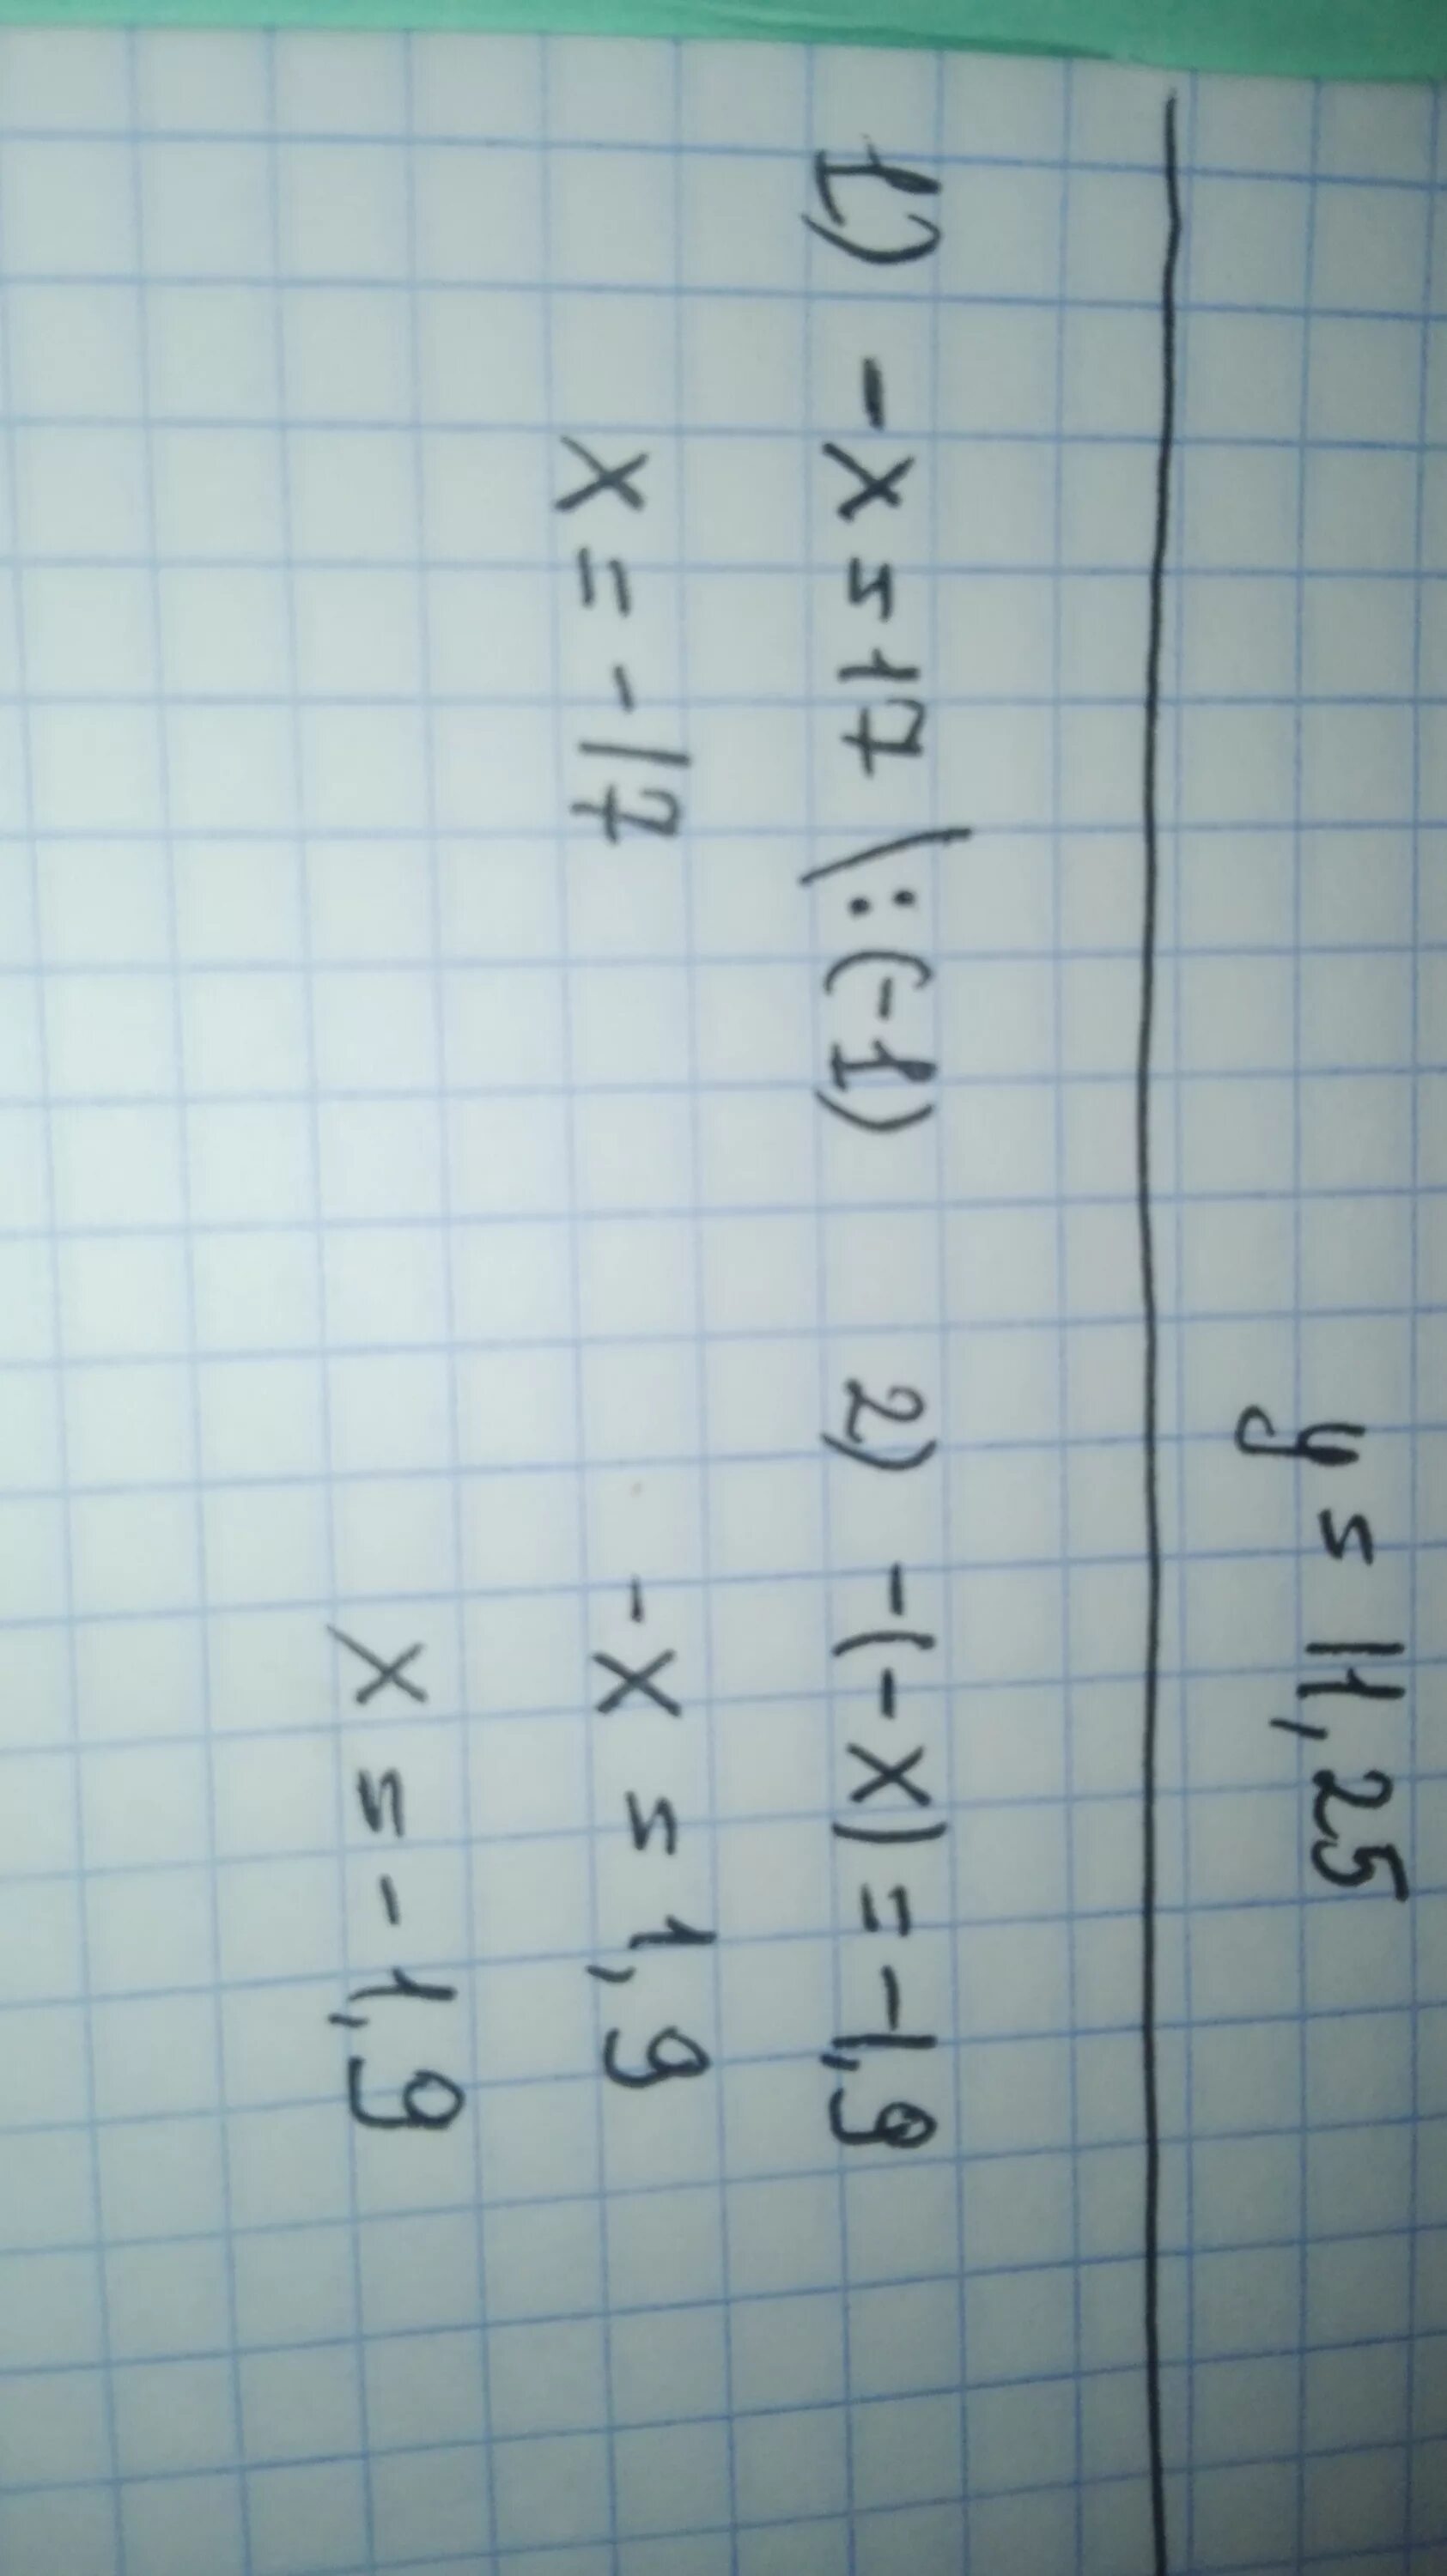 y = 11,25
1) -x = 17 \ : (-1)
x = -17
2) -(-x) = -1,9
-x = 1,9
x = -1,9